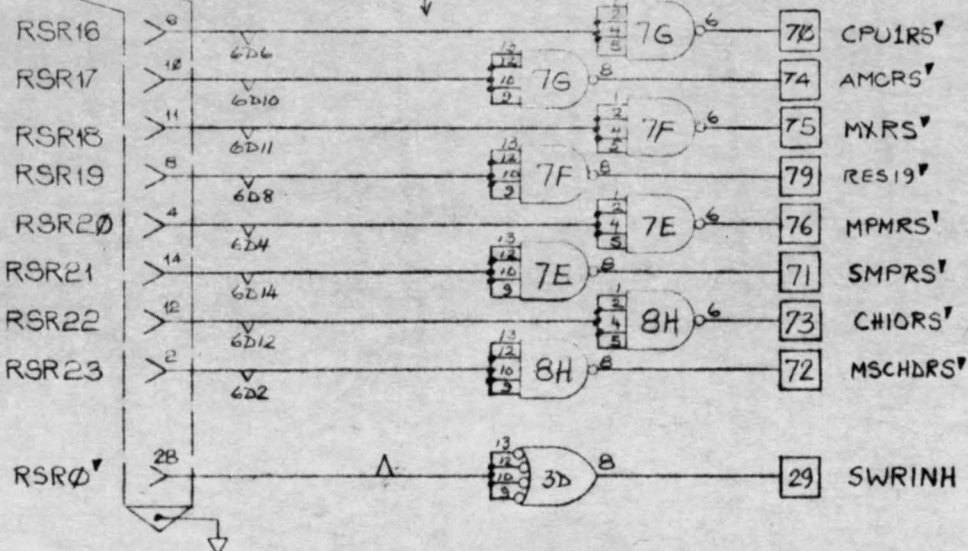 RSR16 6 6D6 1 2 4 5 7G 6 70 CPU1RS'
RSR17 10 6D10 13 12 10 9 7G 8 74 AMCRS'
RSR18 11 6D11 1 2 4 5 7F 6 75 MXRS'
RSR19 8 6D8 13 12 10 9 7F 8 79 RES19'
RSR2Ø 4 6D4 1 2 4 5 7E 6 76 MPMRS'
RSR21 14 6D14 13 12 10 9 7E 8 71 SMPRS'
RSR22 12 6D12 1 2 4 5 8H 6 73 CHIORS'
RSR23 2 6D2 13 12 10 9 8H 8 72 MSCHDRS'
RSRØ' 28 13 12 10 9 3D 8 29 SWRINH